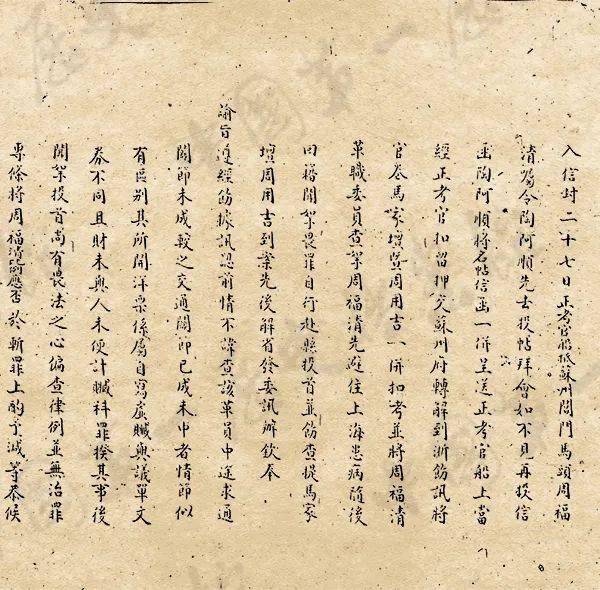 入信封二十七日正考官船抵蘇州閶門馬頭周福
清囑令陶阿順先去投帖拜會如不見再投信
函陶阿順將名帖信函一併呈送正考官船上當
經正考官扣留押交蘇州府轉解到浙飭訊將
官卷馬家壇暨周用吉一併扣考並將周福清
革職委員查拏周福清先避住上海患病隨後
回籍聞拏畏罪自行赴縣投首並飭查提馬家
壇周用吉到案先後解省發委訊辦欽奉
諭旨遵經飭據訊認前情不諱查該革員中途求通
關節未成較之交通關節已成未中者情節似
有區別其所開洋票係屬自寫虛贓與議單文
券不同且財未與人未便計贓科罪揆其事後
聞拏投首尚有畏法之心徧查律例並無治罪
專條將周福清應否於斬罪上酌予減等恭候